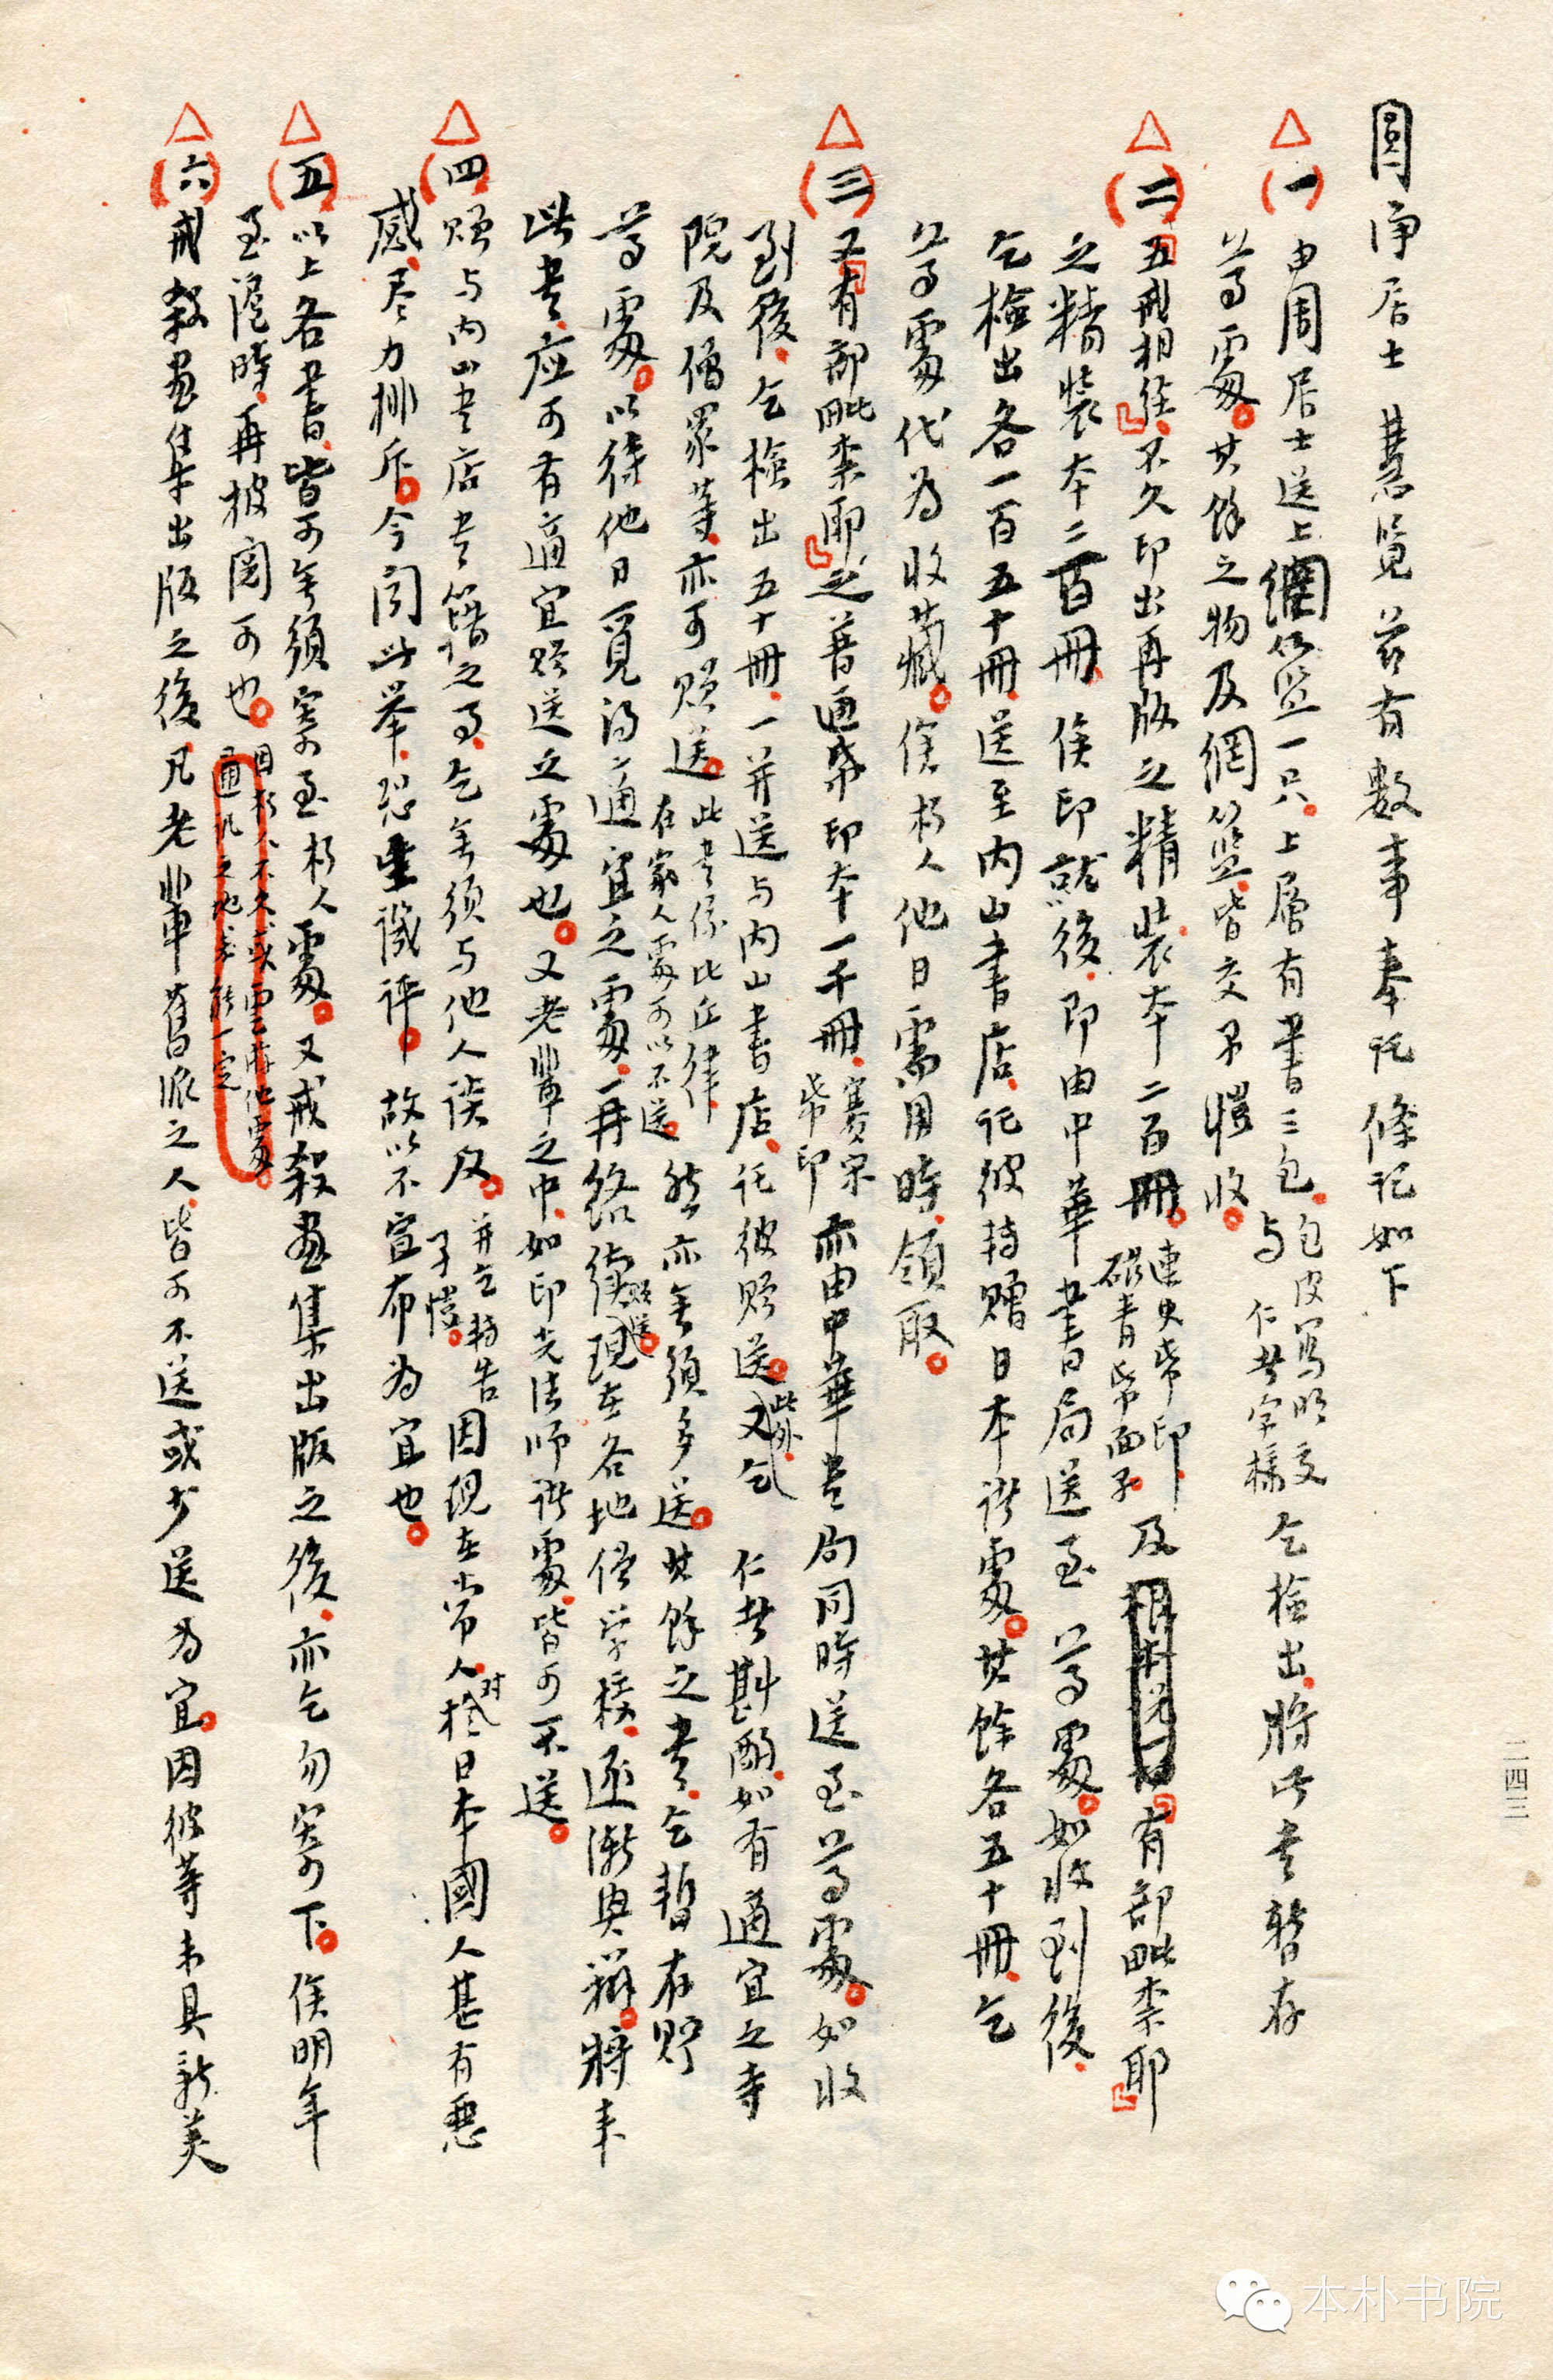 圓淨居士慧覽 茲有數事奉託條記如下
(一)由周居士送上網籃一只、上層有書三包、包皮寫明交与仁者字樣 乞檢出、將此書暫存
尊處。其餘之物及網籃、皆交子愷收。
(二)五戒相經、不久印出再版之精裝本二百冊。連史帋印、磁青帋面子、及 有部毗奈耶
之精裝本二百冊、俟印就後、即由中華書局送至 尊處。如收到後、
乞檢出各一百五十冊、送至内山書店、託彼轉贈日本諸處。其餘各五十冊、乞
尊處代為收藏。俟朽人他日需用時、領取。
(三)又有部毗奈耶之普通帋印本一千冊、賽宋帋印 亦由中華书局同時送至 尊處。如收
到後、乞檢出五十冊、一并送与内山書店、託彼贈送。此外、乞 仁者斟酌、如有適宜之寺
院及僧眾等、亦可贈送。此书係比丘律、在家人處可以不送。然亦無須多送。其餘之书、乞暫存貯
尊處。以待他日覓得適宜之處、再絡續贈送。現在各地僧学校、逐漸興辦。將来
此书、应可有適宜贈送之處也。又老輩之中、如印光法师諸處、皆可不送。
(四)贈与内山书店书籍之事、乞無須与他人談及。并乞轉告子愷。因現在常人、对於日本國人甚有惡
感、尽力排斥。今聞此举、恐生譏評。故以不宣布為宜也。
(五)以上各書、皆可無須寄至朽人處。又戒殺畫集出版之後、亦乞勿寄下。俟明年
至滬時、再披閱可也。因朽人不久或雲游他處、通訊之地未能一定
(六)戒殺畫集出版之後、凡老輩舊派之人、皆可不送或少送為宜。因彼等未具新美
二四三
本朴书院